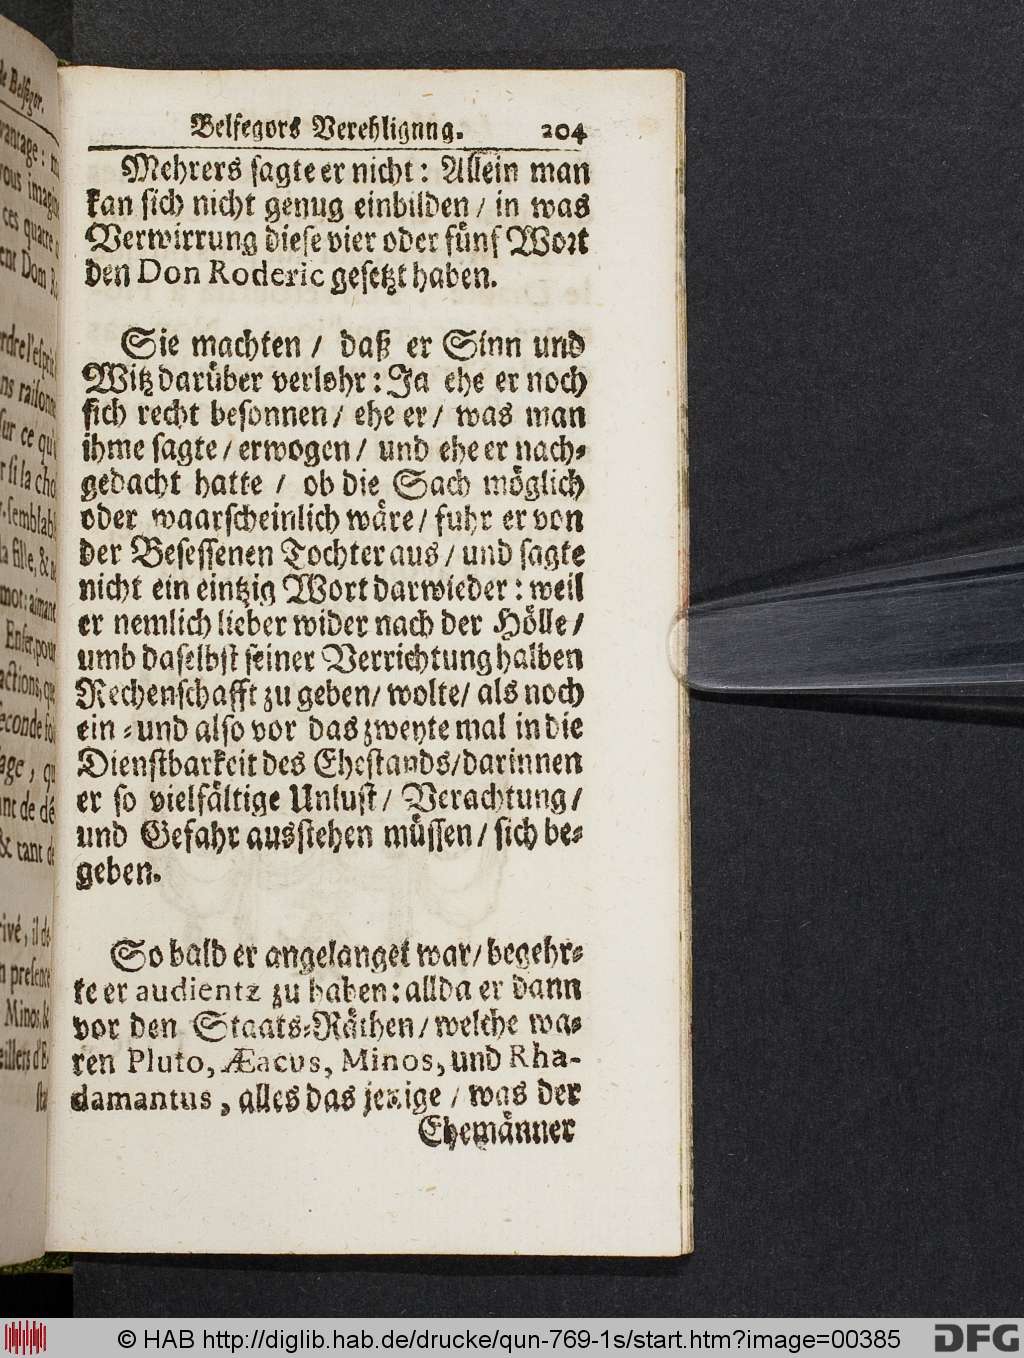 de Belfegor.
vantage :
vous imagi
ces quatre
ent Dom R
rdre l'esprit
ns raisonne
sur ce qu'
r si la cho
semblabl
la fille, &
mot: aimant
Enfer, pour
actions, que
seconde fo
age, qu
ant de dé
& tant de
rivé, il de
n presence
Minos, &
eillers d'E-
Belfegors Verehlignng. 204
Mehrers sagte er nicht: Allein man
kan sich nicht genug einbilden / in was
Verwirrung diese vier oder fünf Wort
den Don Roderic gesetzt haben.
Sie machten / daß er Sinn und
Witz darüber verlohr: Ja ehe er noch
sich recht besonnen / ehe er / was man
ihme sagte / erwogen / und ehe er nach-
gedacht hatte / ob die Sach möglich
oder waarscheinlich wäre / fuhr er von
der Besessenen Tochter aus / und sagte
nicht ein eintzig Wort darwieder: weil
er nemlich lieber wider nach der Hölle /
umb daselbst seiner Verrichtung halben
Rechenschafft zu geben / wolte / als noch
ein- und also vor das zweyte mal in die
Dienstbarkeit des Ehestands / darinnen
er so vielfältige Unlust / Verachtung /
und Gefahr ausstehen müssen / sich be-
geben.
So bald er angelanget war / begehr-
te er audientz zu haben: allda er dann
vor den Staats-Räthen / welche wa-
ren Pluto, Æacus, Minos, und Rha-
damantus, alles das jenige / was der
Ehemänner
© HAB http://diglib.hab.de/drucke/qun-769-1s/start.htm?image=00385
DFG